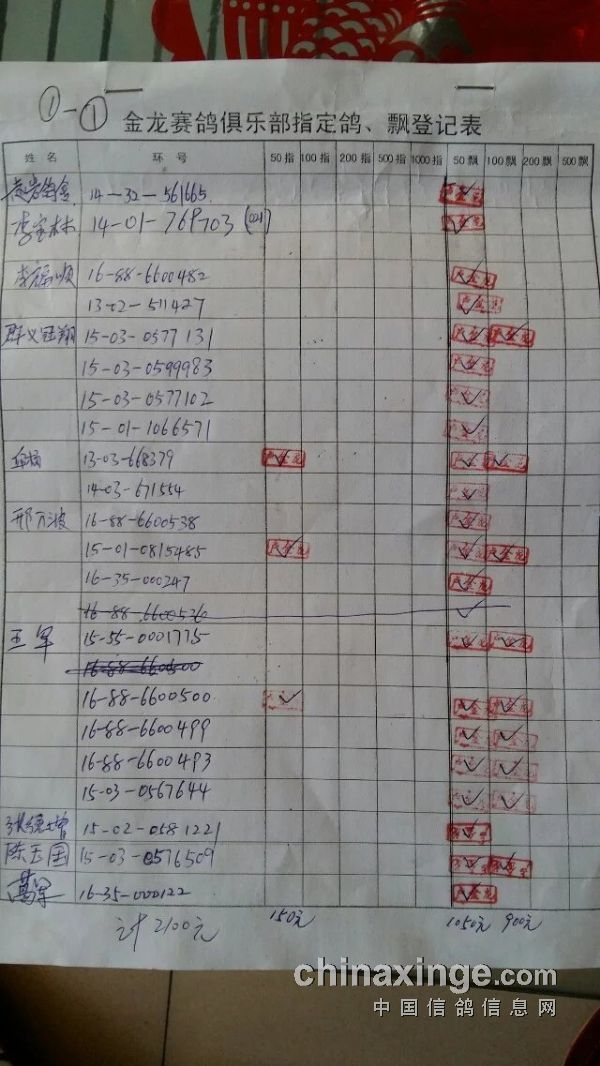 ①-①
金龙赛鸽俱乐部指定鸽、飘登记表
姓 名 环 号 50指 100指 200指 500指 1000指 50飘 100飘 200飘 500飘
14-32-561665
李宝林 14-01-769703 (021)
李福顺 16-88-6600482
13-02-511427
群义冠翔 15-03-0577131
15-03-0599983
15-03-0577102
15-01-1066571
13-03-668379
14-03-671554
邢万波 16-88-6600538
15-01-0815485
16-35-000247
16-88-6600536
王军 15-55-0001775
16-88-6600500
16-88-6600500
16-88-6600499
16-88-6600493
15-03-0567644
15-02-0581221
陈玉国 15-03-0576509
16-35-000122
计2100元 150元 1050元 900元
chinaxinge.com
中国信鸽信息网